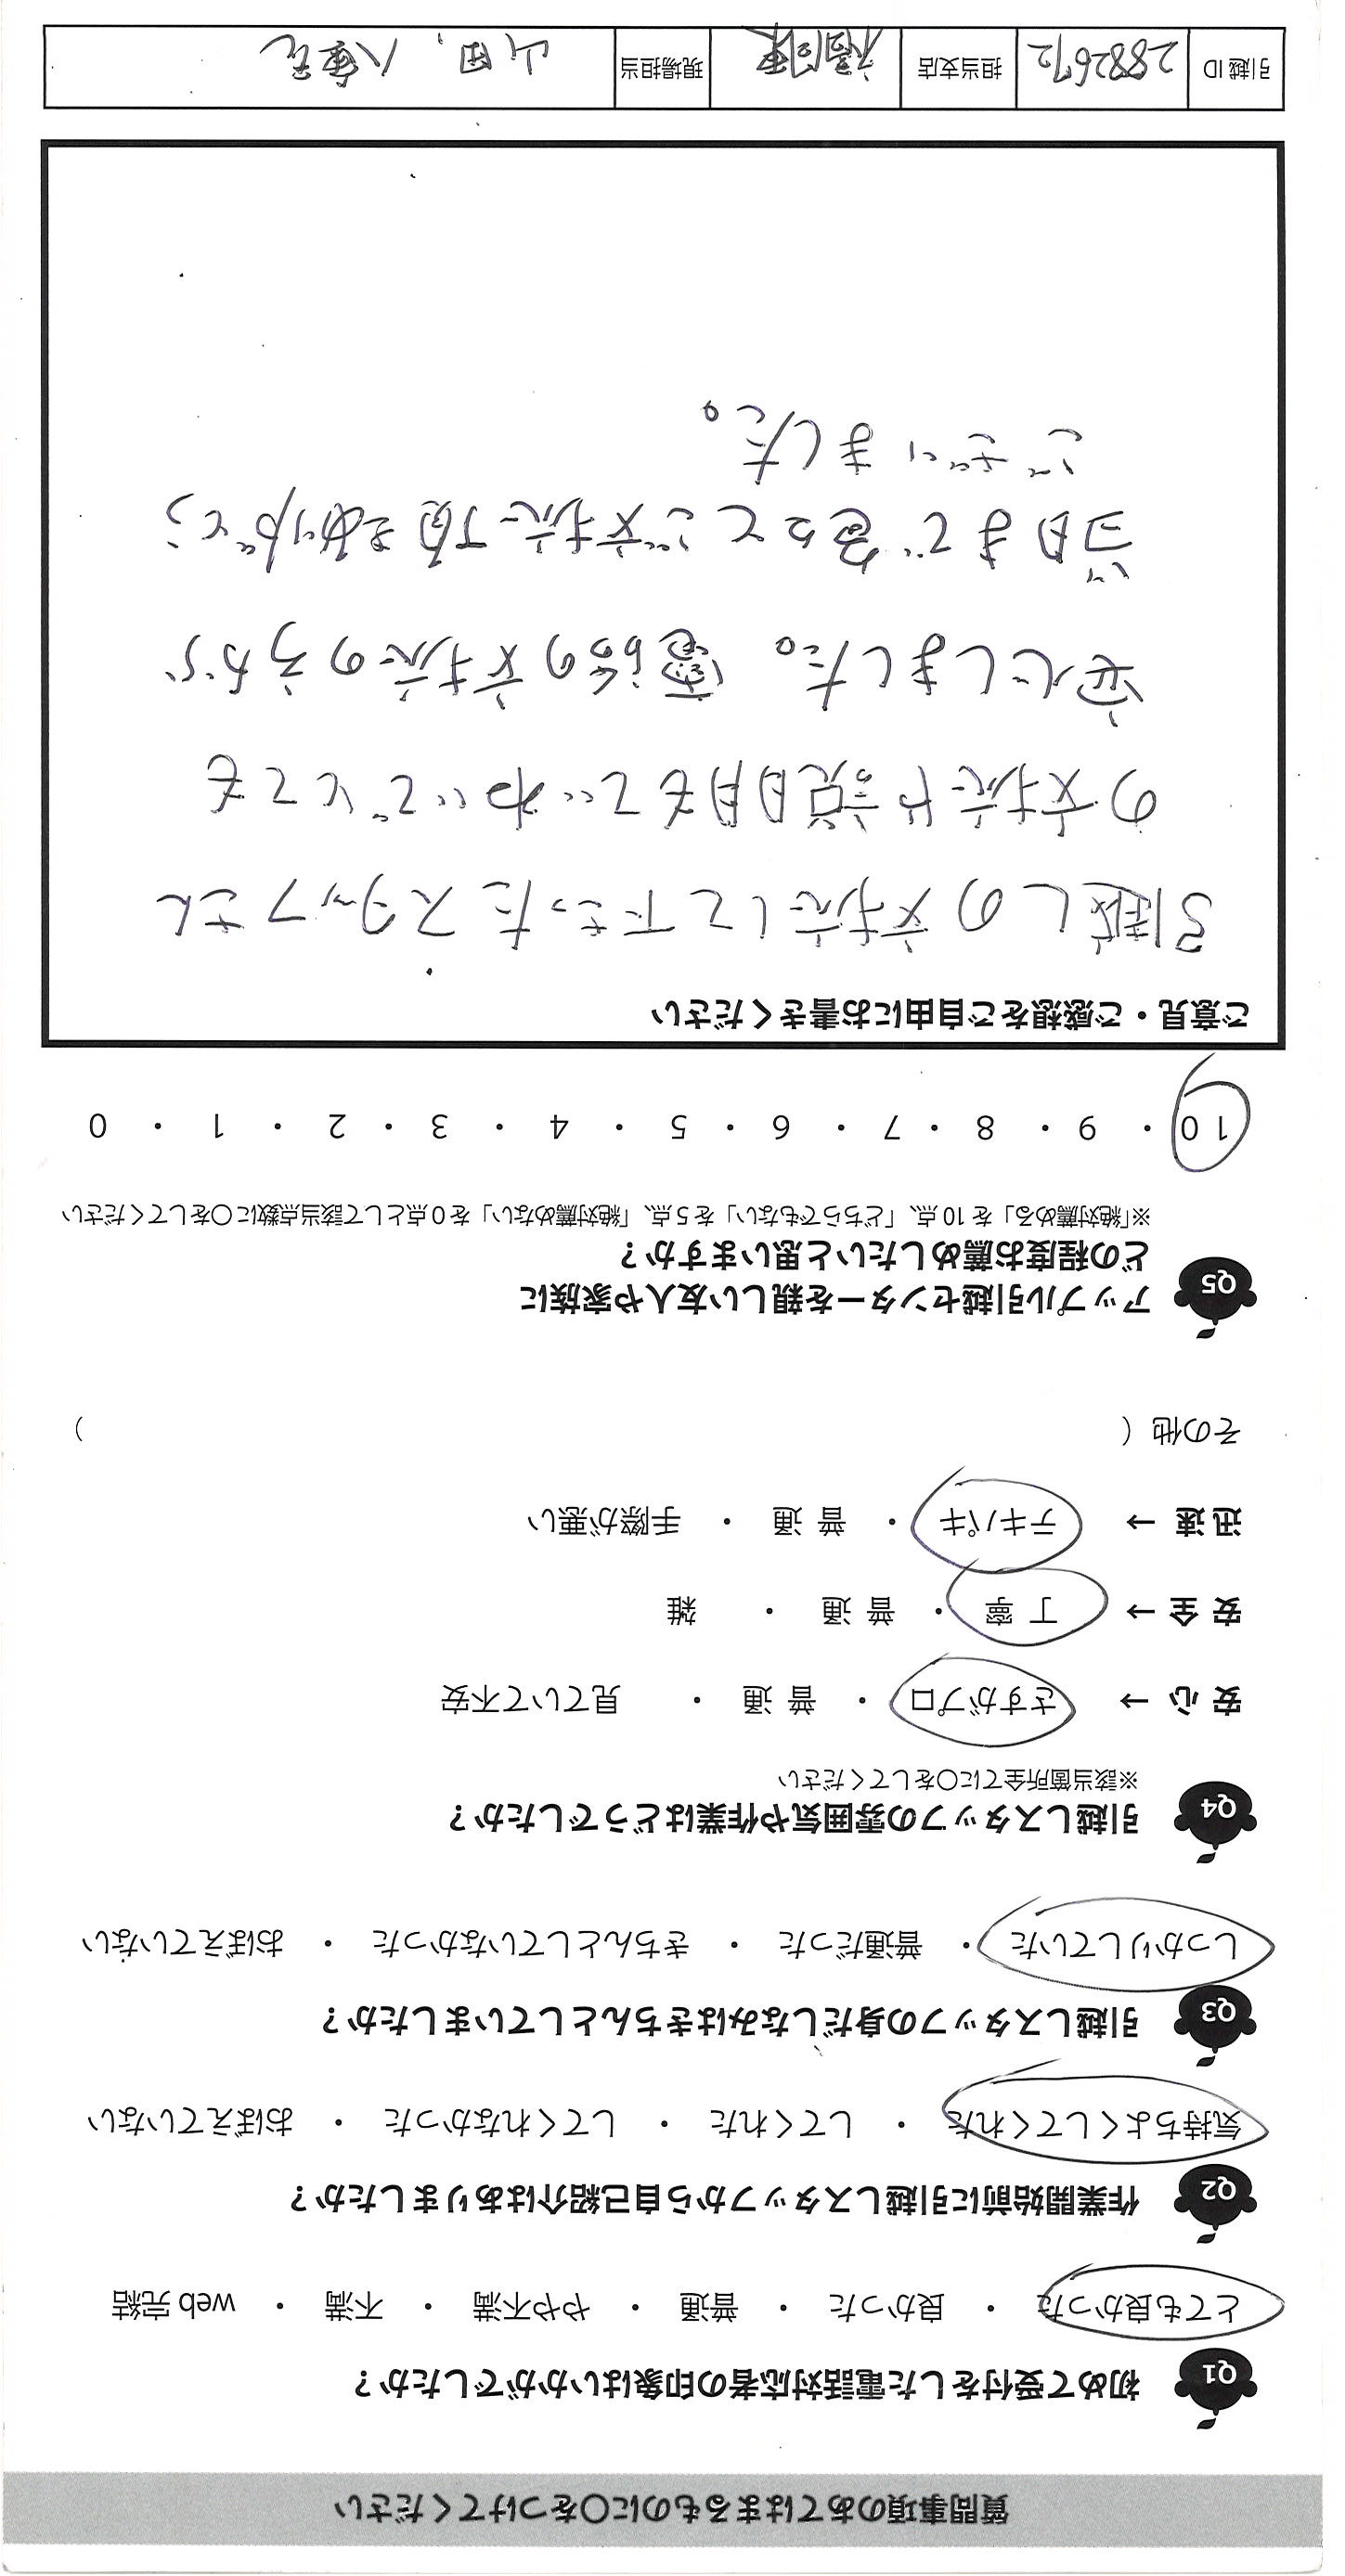 質問事項のあてはまるものに○をつけてください
Q1 初めて受付をした電話対応者の印象はいかがでしたか？
とても良かった ・ 良かった ・ 普通 ・ やや不満 ・ 不満 ・ web 完結
Q2 作業開始前に引越しスタッフから自己紹介はありましたか？
気持ちよくしてくれた ・ してくれた ・ してくれなかった ・ おぼえていない
Q3 引越しスタッフの身だしなみはきちんとしていましたか？
しっかりしていた ・ 普通だった ・ きちんとしていなかった ・ おぼえていない
Q4 引越しスタッフの雰囲気や作業はどうでしたか？
※該当箇所全てに○をしてください
安 心 → さすがプロ ・ 普 通 ・ 見ていて不安
安 全 → 丁 寧 ・ 普 通 ・ 雑
迅 速 → テキパキ ・ 普 通 ・ 手際が悪い
その他（　　　）
Q5 アップル引越センターを親しい友人や家族に
どの程度お薦めしたいと思いますか？
※「絶対薦める」を 10 点、「どちらでもない」を 5 点、「絶対薦めない」を 0 点として該当点数に○をしてください
10 ・ 9 ・ 8 ・ 7 ・ 6 ・ 5 ・ 4 ・ 3 ・ 2 ・ 1 ・ 0
ご意見・ご感想をご自由にお書きください
引越しの対応して下さったスタッフさん
の対応や説明もていねいでとても
安心しました。電話の対応の方から
当日まで急なご対応頂きありがとう
ございました。
引越 ID 2882672 担当支店 福岡東 現場担当 山田,